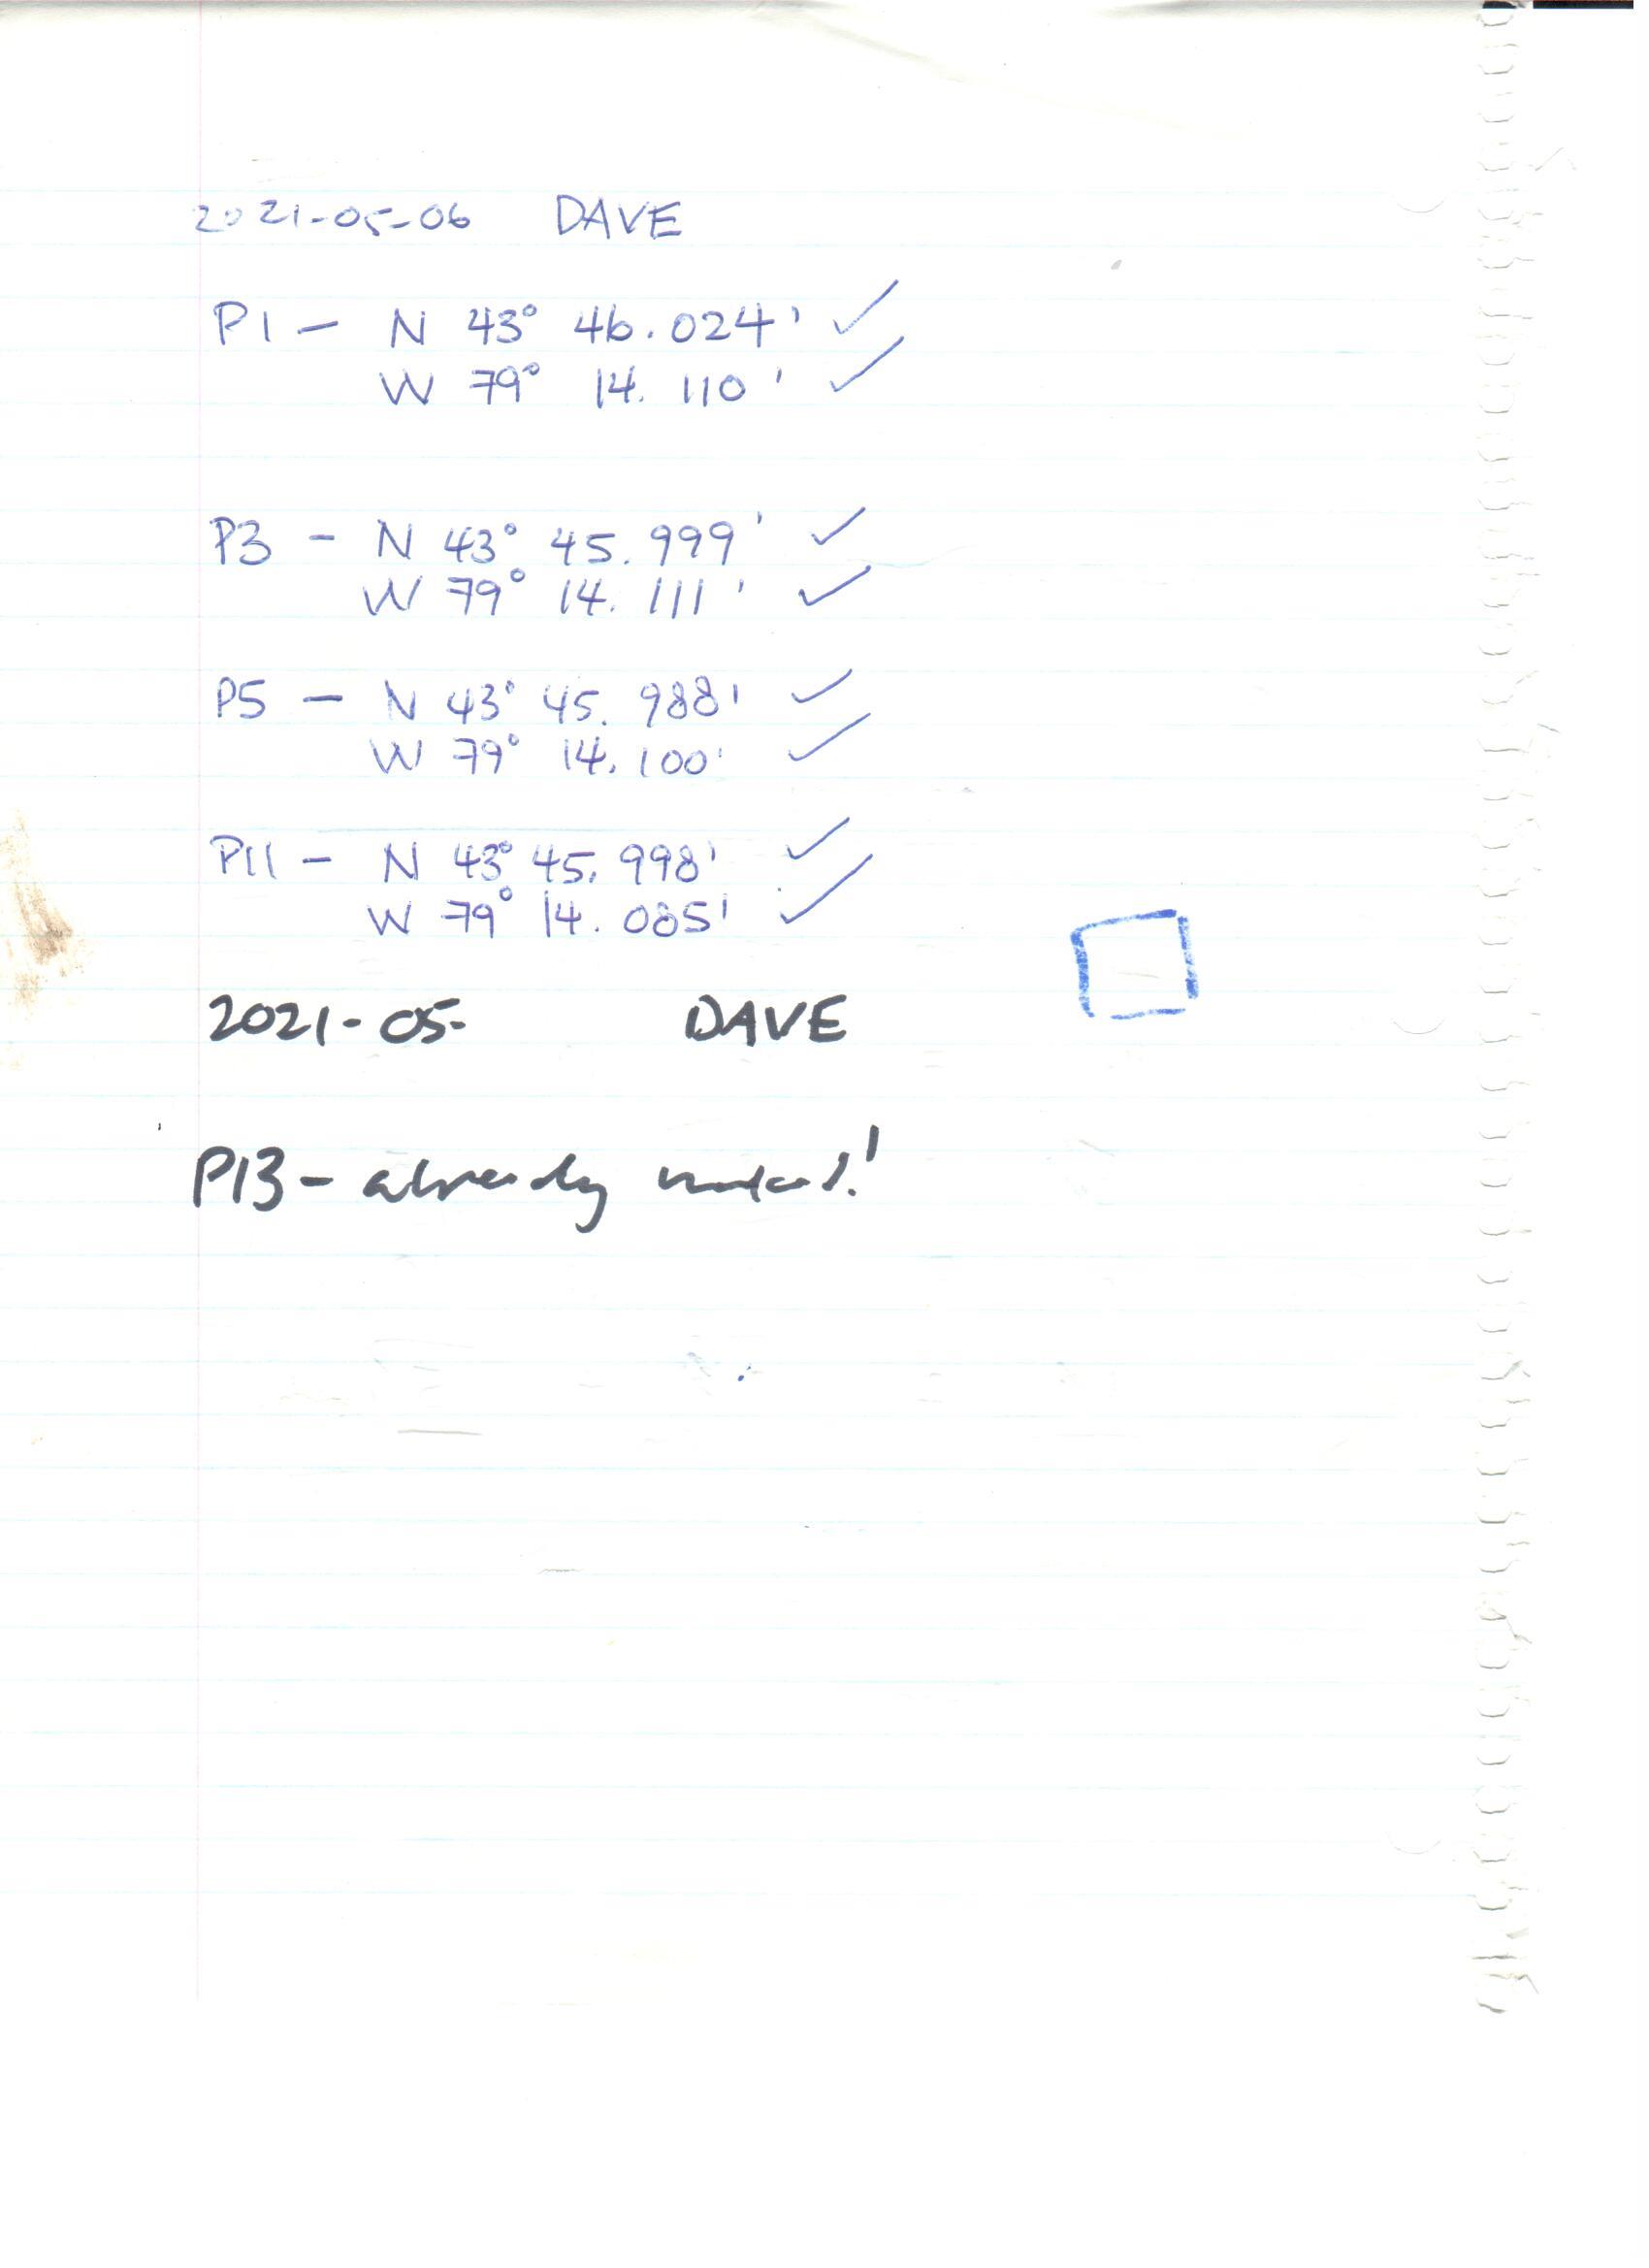 2021-05-06 DAVE
P1 - N 43° 46.024' ✓
W 79° 14.110' ✓
P3 - N 43° 45.999' ✓
W 79° 14.111' ✓
P5 - N 43° 45.988' ✓
W 79° 14.100' ✓
P11 - N 43° 45.998' ✓
W 79° 14.085' ✓
2021-05- DAVE
P13 - already